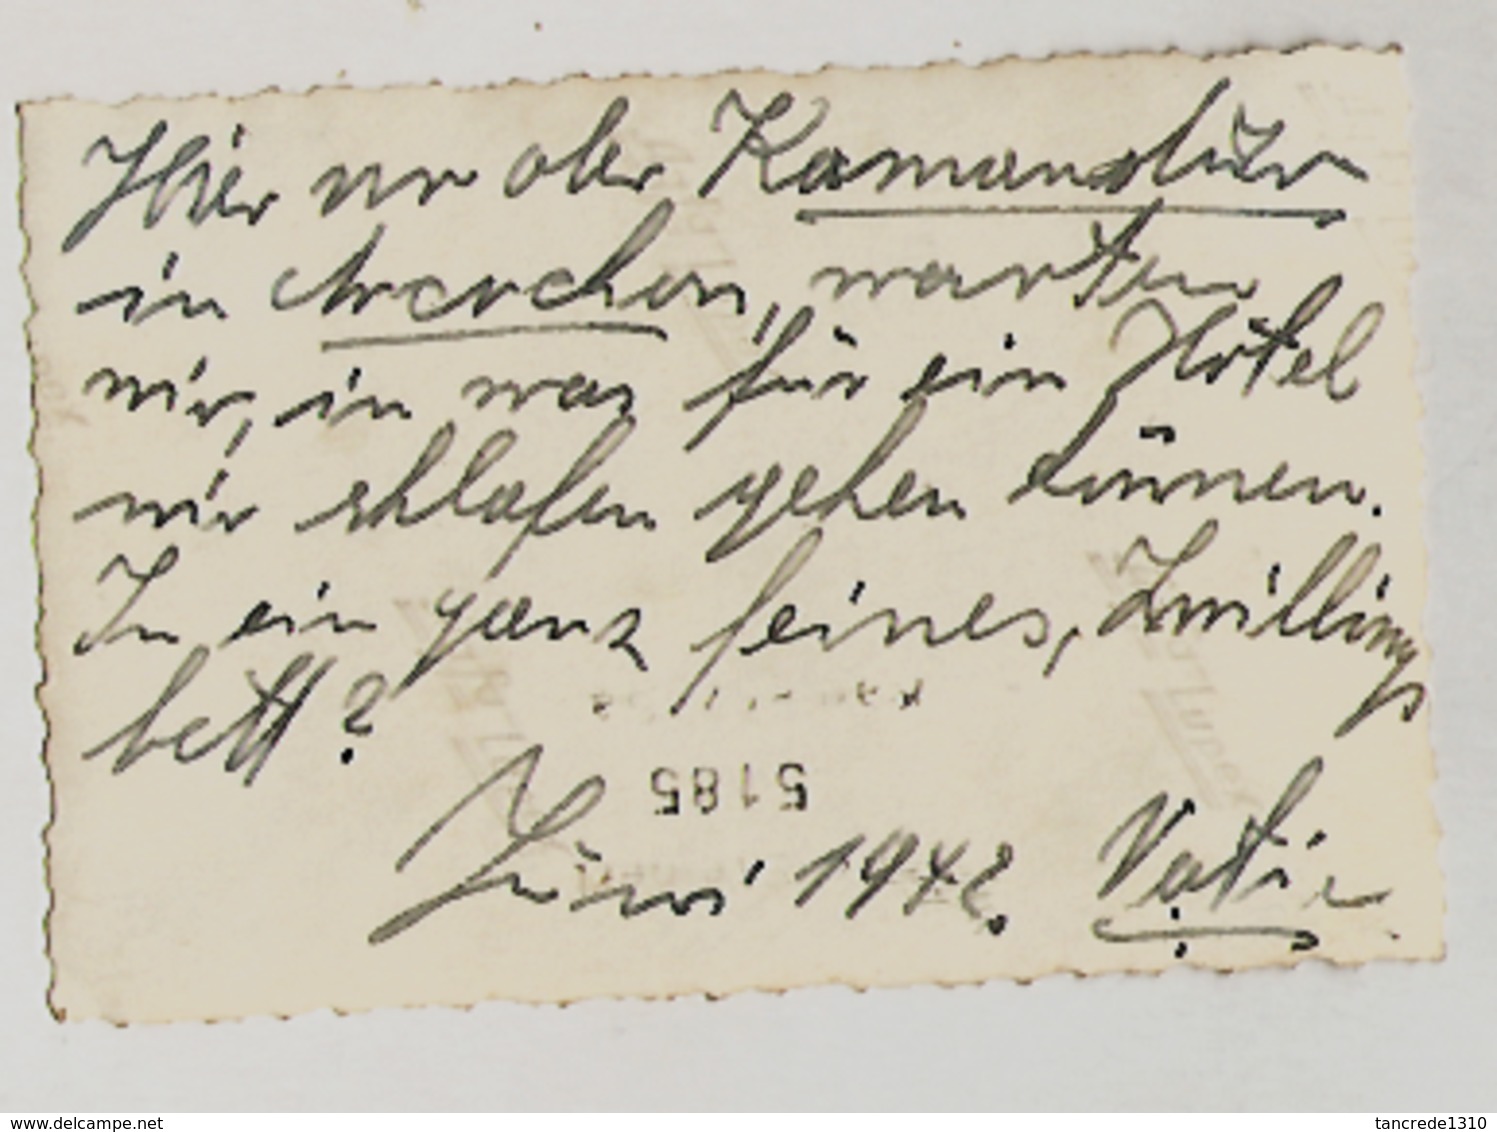 Hier vor der Kamandtür
in Arcachon, warten
wir, in was für ein Hotel
wir schlafen gehen können.
In ein ganz feines, Zwillings
bett?
5185
Juni 1942. Vati
www.delcampe.net
tancrede1310